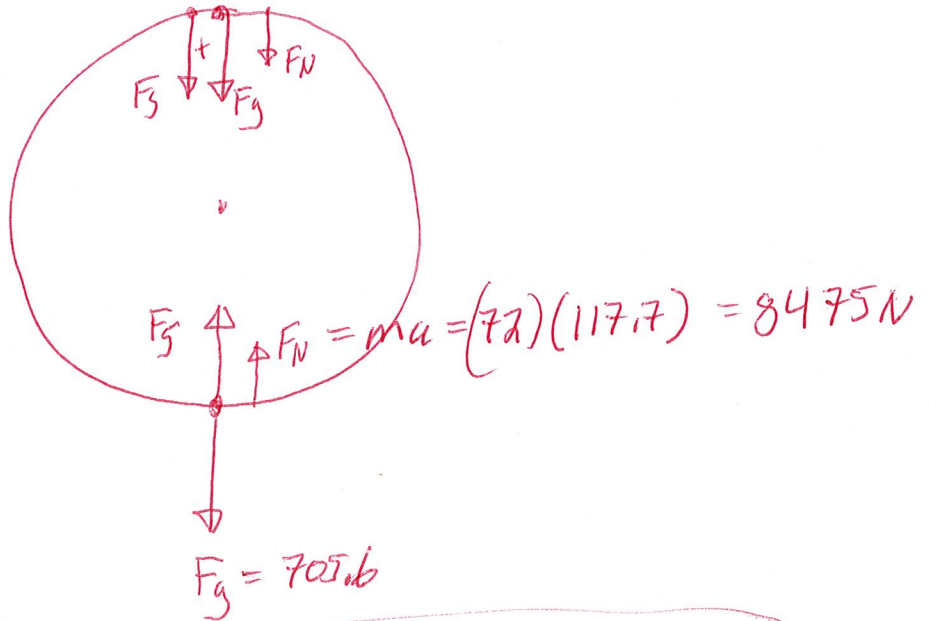 +
F_N
F_s
F_g
F_s
F_N = ma = (72)(117.7) = 8475N
F_g = 705.6